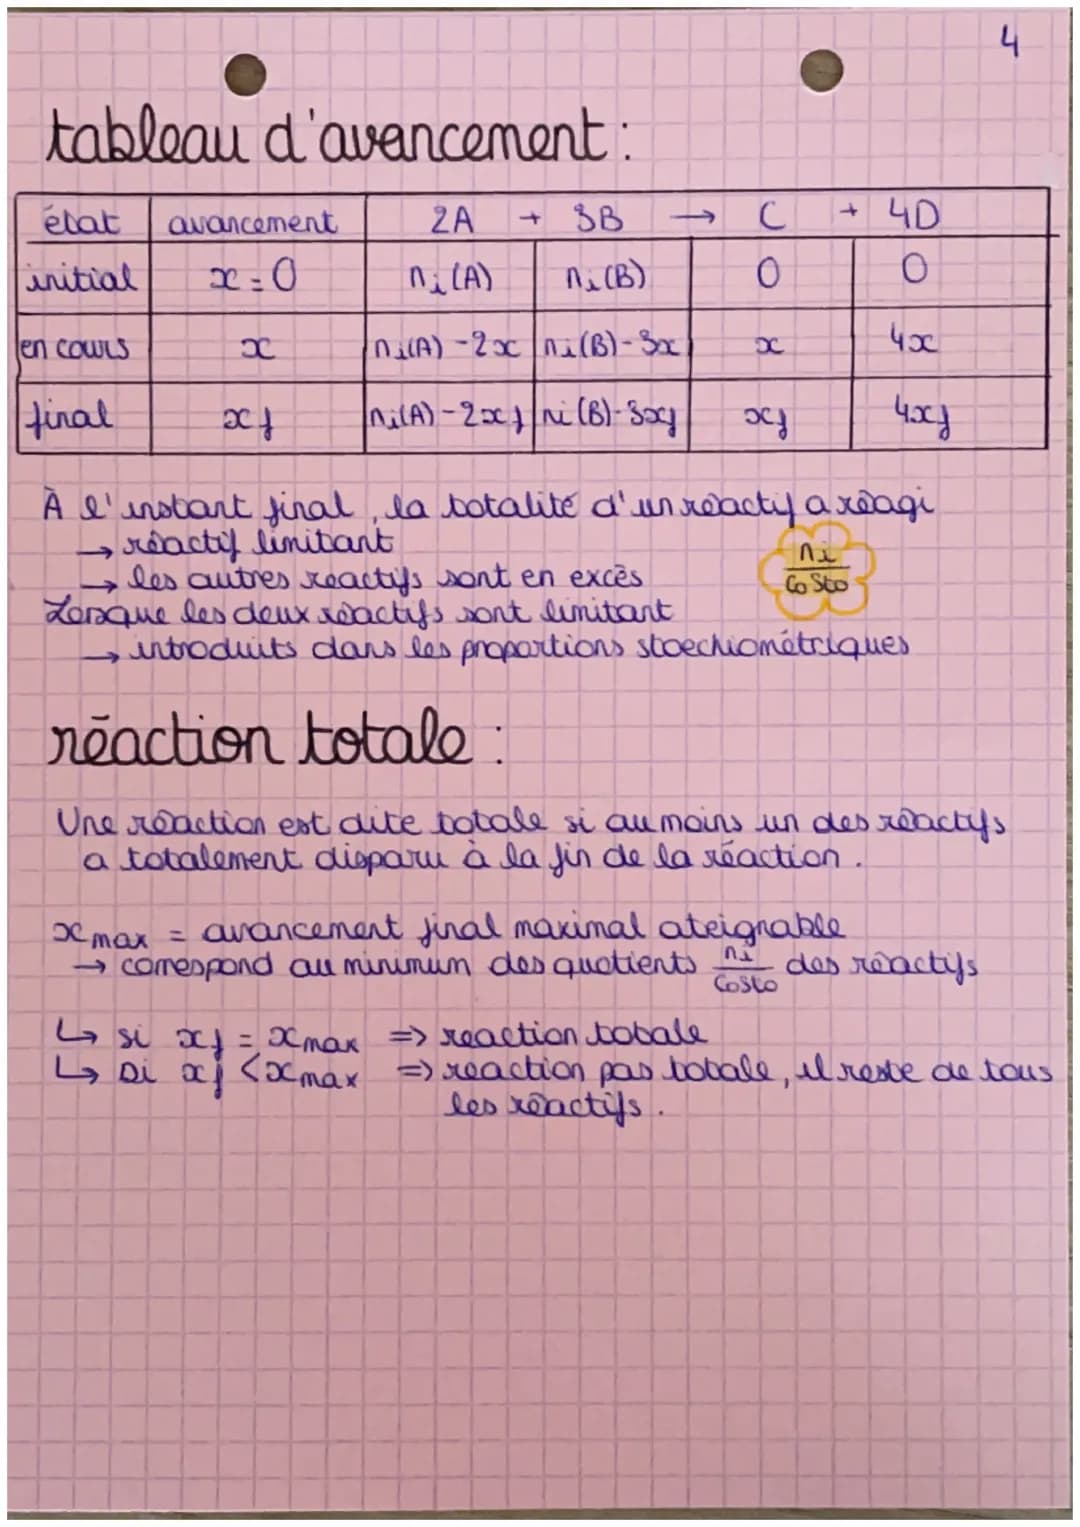 4
tableau d'avancement :
état avancement 2A + 3B → C + 4D
initial x = 0 ni(A) ni(B) 0 0
en cours x ni(A) - 2x ni(B) - 3x x 4x
final xf ni(A) - 2xf ni(B) - 3xf xf 4xf
À l'instant final, la totalité d'un réactif a réagi
→ réactif limitant
ni/CoSto
→ les autres reactifs sont en excès
Lorsque les deux réactifs sont limitant
→ introduits dans les proportions stoechiométriques
réaction totale :
Une réaction est dite totale si au moins un des réactifs
a totalement disparu à la fin de la réaction.
xmax = avancement final maximal ateignable
→ correspond au minimum des quotients ni/CoSto des réactifs
↳ si xf = xmax => reaction totale
↳ si xf < xmax => reaction pas totale, il reste de tous
les réactifs.